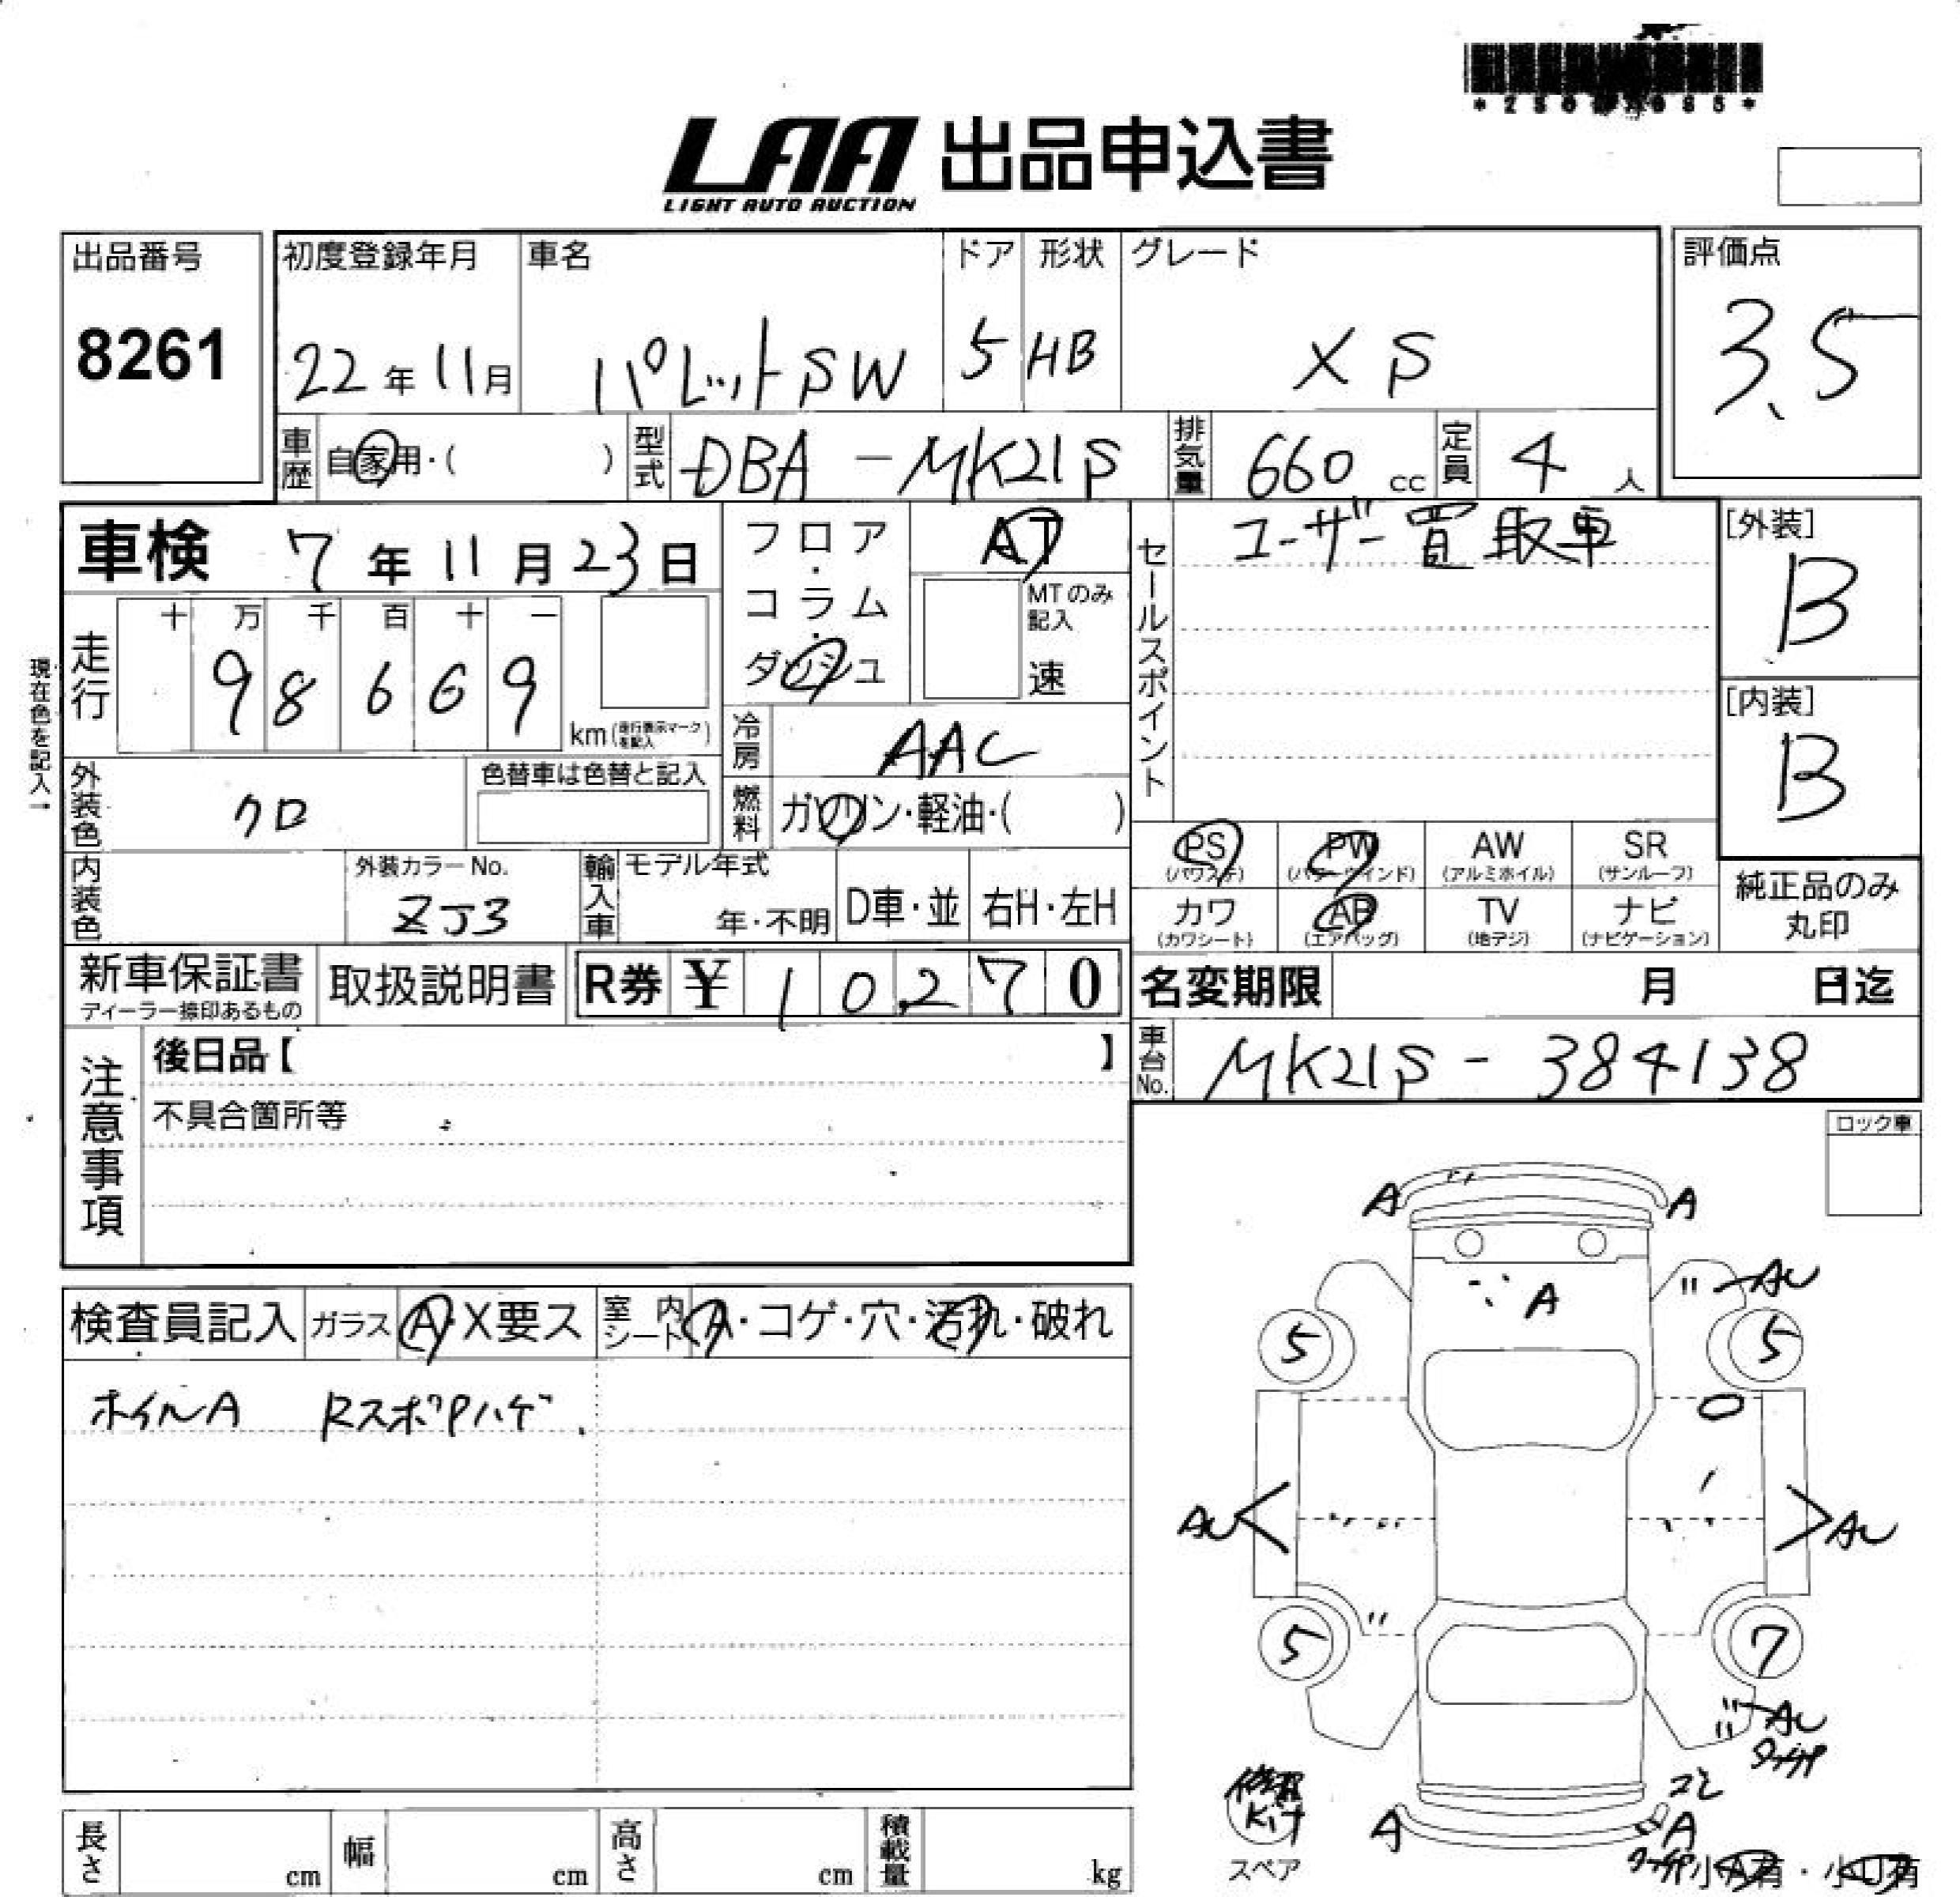 LAA 出品申込書
LIGHT AUTO AUCTION
出品番号
8261
初度登録年月
22年11月
車名
パレットSW
ドア
5
形状
HB
グレード
XS
評価点
3.5
車歴 自家用・( )
型式 DBA-MK21S
排気量 660 cc
定員 4 人
車検 7年11月23日
フロア・コラム・ダッシュ
AT
MTのみ記入
速
セールスポイント
ユーザー買取車
[外装]
B
[内装]
B
現在色を記入→
走行
十 万 千 百 十 一
9 8 6 6 9
km(走行表示マークを記入)
冷房 AAC
燃料 ガソリン・軽油・( )
外装色 クロ
色替車は色替と記入
内装色
外装カラーNo.
ZJ3
輸入車
モデル年式
年・不明
D車・並
右H・左H
PS
(パワステ)
PW
(パワーウインド)
AW
(アルミホイル)
SR
(サンルーフ)
カワ
(カワシート)
AB
(エアバッグ)
TV
(地デジ)
ナビ
(ナビゲーション)
純正品のみ
丸印
新車保証書
ディーラー捺印あるもの
取扱説明書
R券 ¥ 10,270
名変期限 月 日迄
車台No. MK21S-384138
注意事項
後日品【 】
不具合箇所等
ロック車
検査員記入
ガラス A・X要ス
室内シート A・コゲ・穴・汚れ・破れ
ホイルA RスポPハゲ
A A
A
AU
5 5
AU AU
5 7
AU
コミ
A A
修理Kit
スペア
小A有・小U有
長さ cm
幅 cm
高さ cm
積載量 kg